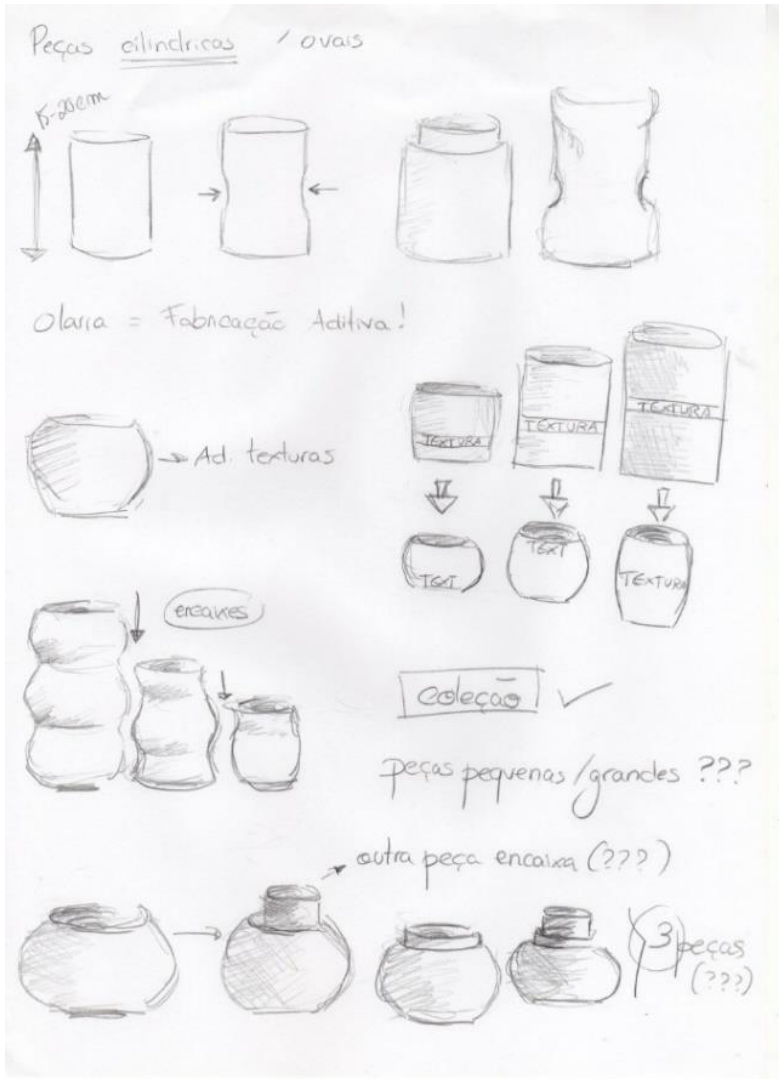 Peças cilindricas / ovais
15-20cm
Olaria = Fabricação Aditiva!
TEXTURA
TEXTURA
TEXTURA
→ Ad. texturas
TEXT
TEXT
TEXTURA
encaixes
Coleção ✓
peças pequenas/grandes ???
outra peça encaixa (???)
3 peças
(???)